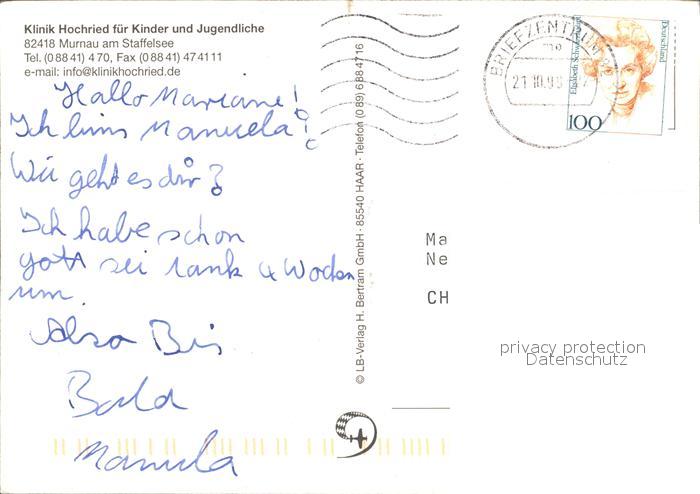 Klinik Hochried für Kinder und Jugendliche
82418 Murnau am Staffelsee
Tel. (0 88 41) 4 70, Fax (0 88 41) 47 41 11
e-mail: info@klinikhochried.de
Hallo Mariane!
Ich bins Manuela!
Wie geht es dir?
Ich habe schon
gott sei rank 4 Wochen
um.
Also Bis
Bald
Manuela
© LB-Verlag H. Bertram GmbH · 85540 HAAR · Telefon (0 89) 6 88 47 16
BRIEFZENTRUM
21.10.99
Deutschland
Elisabeth Schwarzhaupt
100
Ma
Ne
CH
privacy protection
Datenschutz